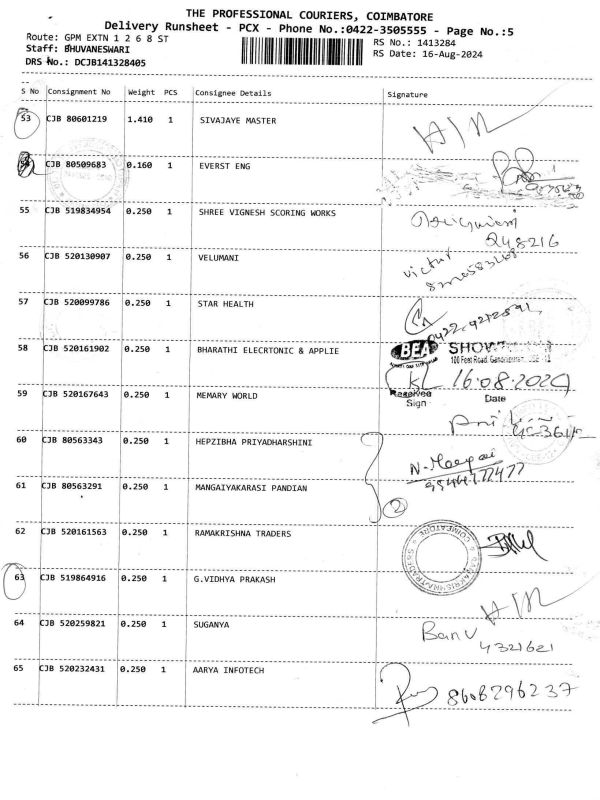 THE PROFESSIONAL COURIERS, COIMBATORE
Delivery Runsheet - PCX - Phone No.:0422-3505555 - Page No.:5
Route: GPM EXTN 1 2 6 8 ST
RS No.: 1413284
Staff: BHUVANESWARI
RS Date: 16-Aug-2024
DRS No.: DCJB141328405
S No Consignment No Weight PCS Consignee Details Signature
53 CJB 80601219 1.410 1 SIVAJAYE MASTER
54 CJB 80509683 0.160 1 EVERST ENG
55 CJB 519834954 0.250 1 SHREE VIGNESH SCORING WORKS
248216
56 CJB 520130907 0.250 1 VELUMANI
victor
57 CJB 520099786 0.250 1 STAR HEALTH
58 CJB 520161902 0.250 1 BHARATHI ELECRTONIC & APPLIE
BEA
100 Feet Road,
16.08.2024
Received Sign
Date
59 CJB 520167643 0.250 1 MEMARY WORLD
60 CJB 80563343 0.250 1 HEPZIBHA PRIYADHARSHINI
61 CJB 80563291 0.250 1 MANGAIYAKARASI PANDIAN
2
62 CJB 520161563 0.250 1 RAMAKRISHNA TRADERS
COIMBATORE
63 CJB 519864916 0.250 1 G.VIDHYA PRAKASH
64 CJB 520259821 0.250 1 SUGANYA
Banu
4321621
65 CJB 520232431 0.250 1 AARYA INFOTECH
8608296237